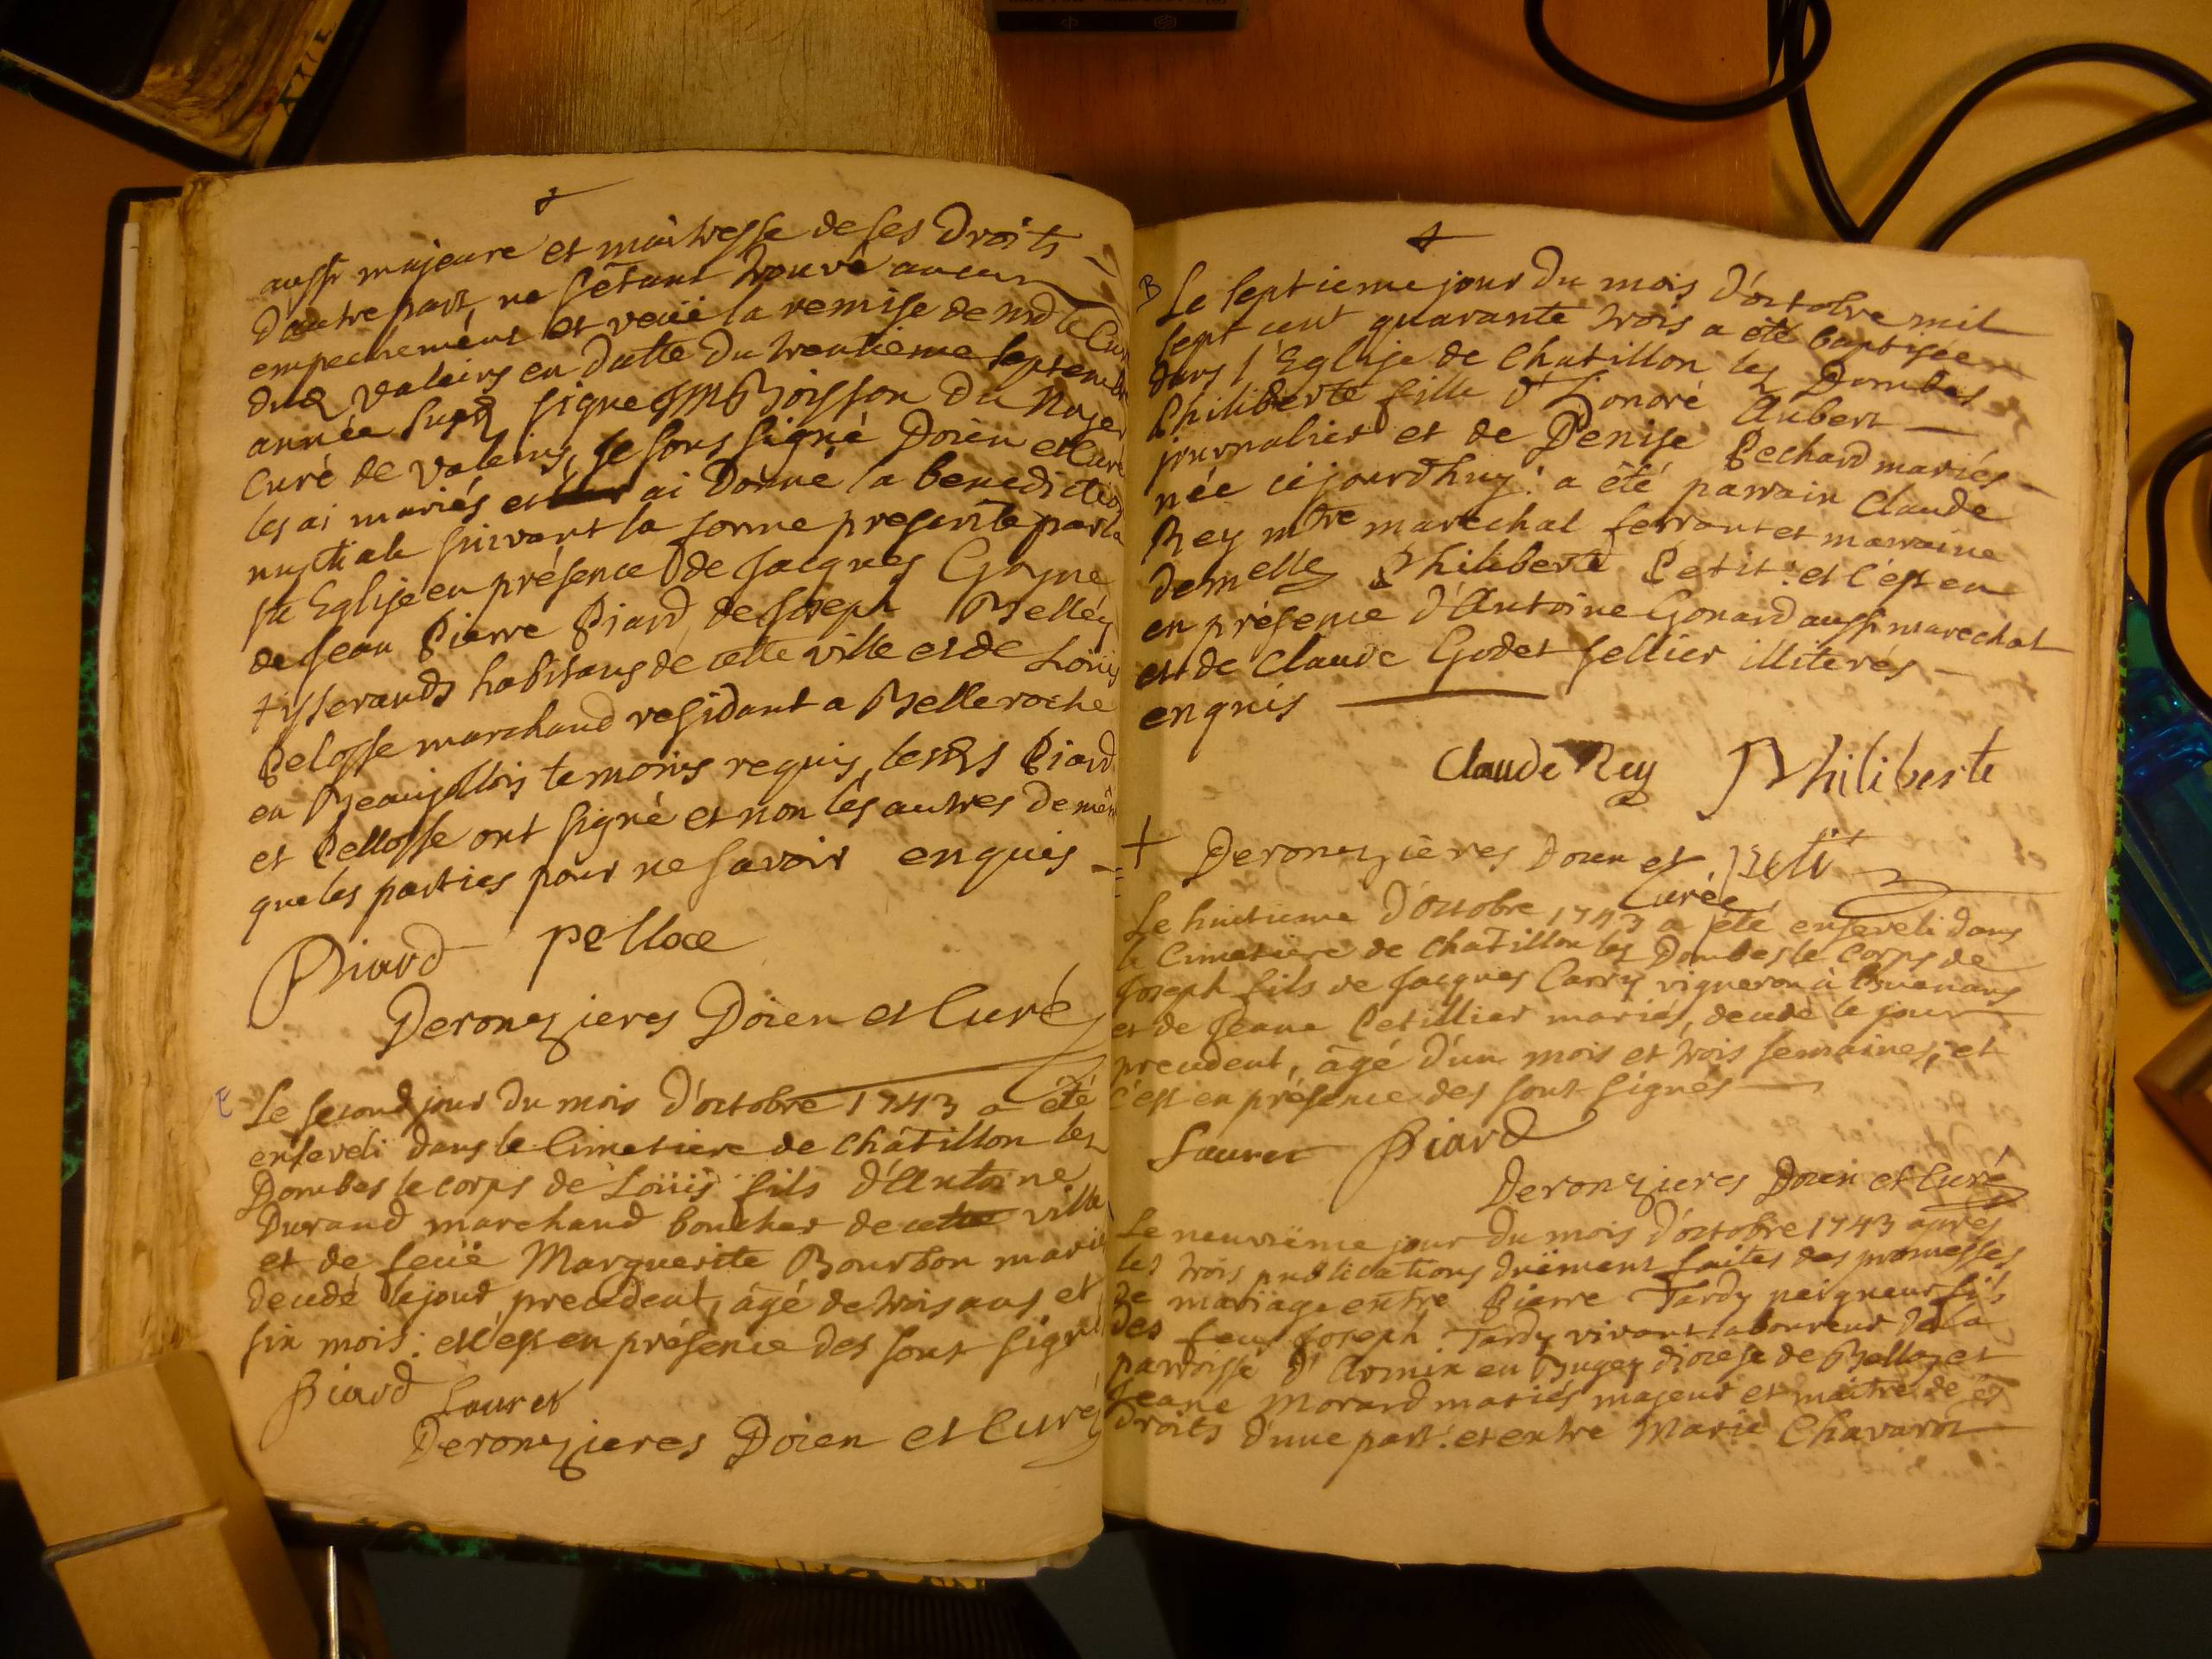 aussi majeure et maitresse de ses Droits
D'autre part, ne s'étant trouvé aucun
empechement et veüe la remise de mr le Curé
dud Valeins en datte du trentieme septembre
année susd signé Boisson Du Noyer
Curé de Valeins, Je soussigné Doïen et Curé
les ai mariés et ai Donné la benediction
nuptiale suivant la forme prescrite par la
ste Eglise en présence de Jacques Goyne
de Jean Pierre Piard, de Joseph Belley
tisserands habitans de cette ville et de Loüis
Pelosse marchand residant a Belleroche
en Beaujollois temoins requis, lesds Piard
et Pellosse ont signé et non les autres de mème
que les parties pour ne savoir enquis
Piard pelloce
Deronzieres Doïen et Curé
E
Le second jour du mois d'octobre 1743 a été
enseveli dans le Cimetiere de Châtillon les
Dombes le corps de Loüis fils d'Antoine
Durand marchand boucher de cette ville
et de feüe Marguerite Bourbon mariés
decedé le jour precedent, âgé de trois ans et
six mois: et c'est en présence des sous signés
Piard Lauret
Deronzieres Doïen et Curé
B
Le septieme jour du mois d'octobre mil
sept cent quarante trois a été baptisée
dans l'Eglise de Chatillon les Dombes
Philiberte fille d'Honoré Aubert
journalier et de Denise Pechard mariés
née cejourdhuy: a été parrain Claude
Rey mtre marechal ferrant et marraine
demelle Philiberte Petit: et c'est en
en présence d'Antoine Gonard aussi marechal
et de Claude Godet sellier illiterés
enquis
Claude Rey Philiberte
Deronzières Doïen et petit
Curé
Le huitieme d'octobre 1743 a été enseveli dans
le Cimetiere de Chatillon les Dombes le corps de
Joseph fils de Jacques Carry vigneron à Buenans
et de Jeane Cetillier mariés, decedé le jour
precedent, âgé d'un mois et trois semaines, et
c'est en présence des sous signés
Lauret Piard
Deronzieres Doïen et Curé
Le neuvième jour du mois d'octobre 1743 après
les trois publications duëment faites des promesses
de mariage entre Pierre Tardy peigneur fils
des feu Joseph Tardy vivant laboureur de la
parroisse d'Armix en Bugey diocese de Belley et
Jeane Morard mariés majeur et maitre de ses
Droits d'une part: et entre Marie Chavarot